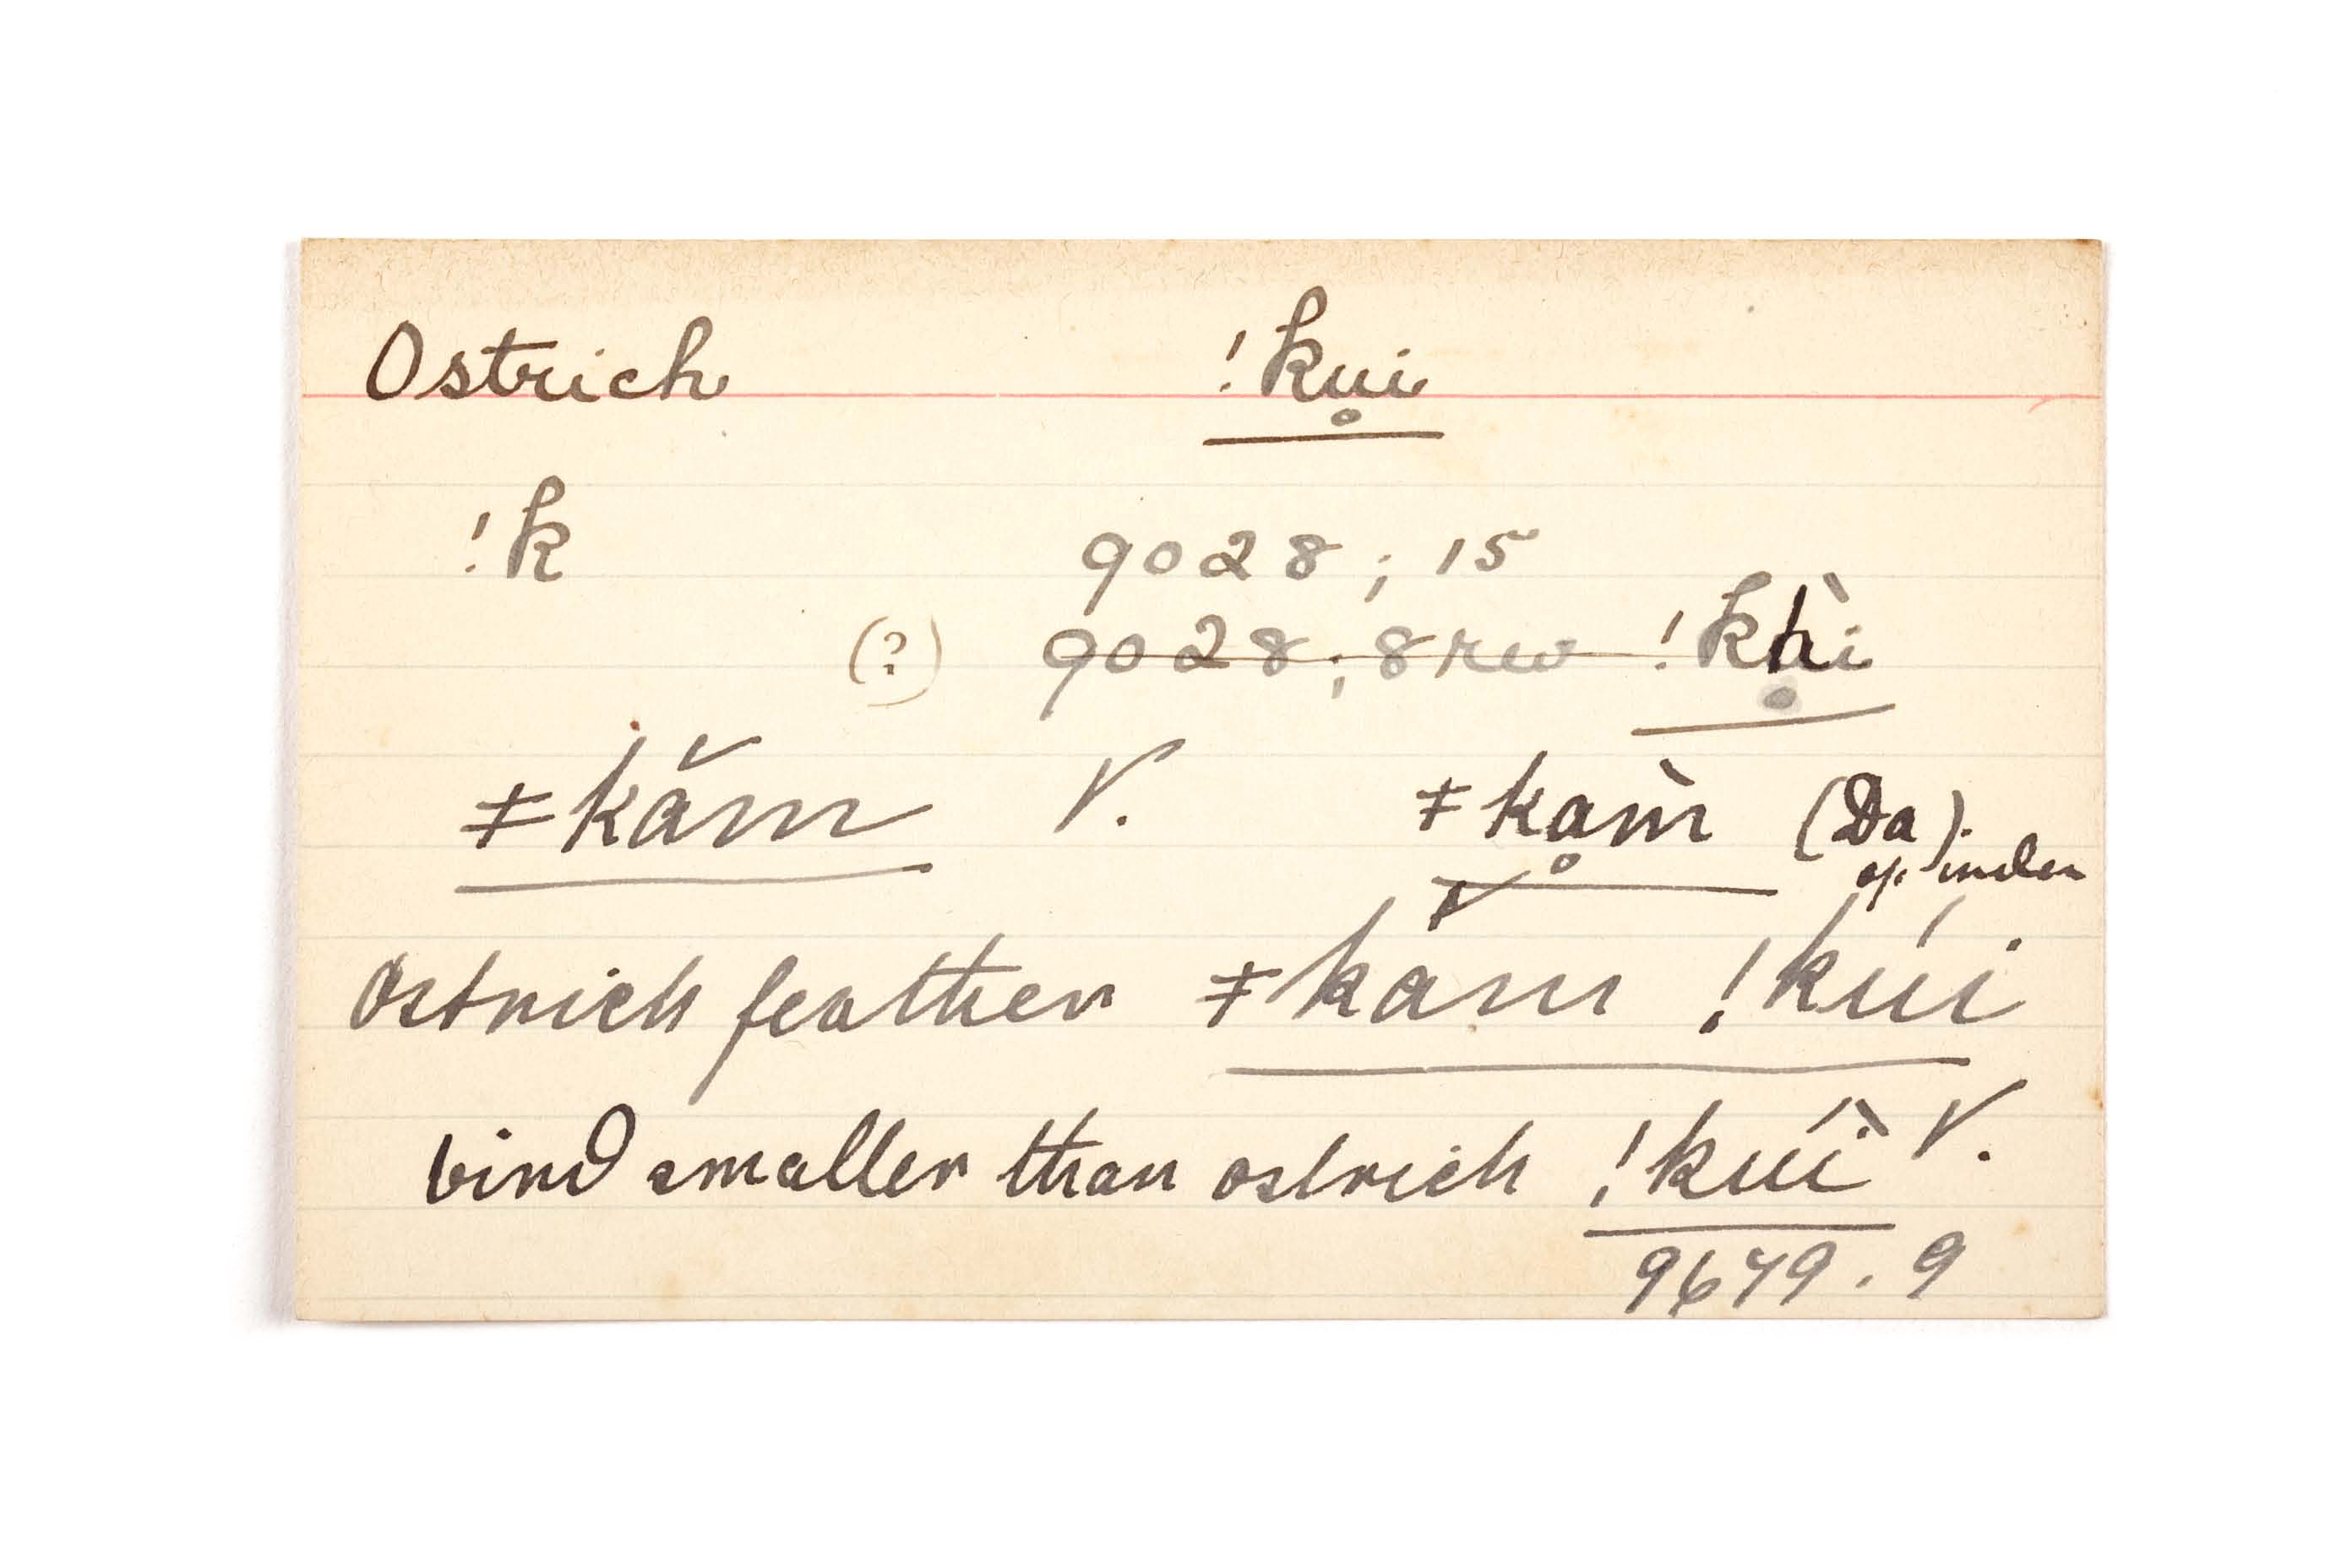 Ostrich !ku̥i
!k 9028; 15
(?) 9028; 8 rev !kù̥i
ǂkăm V. ǂkḁm̀ (Da)
Ostrich feather ǂkăm !kúi
bird smaller than ostrich !kúì V.
9679. 9